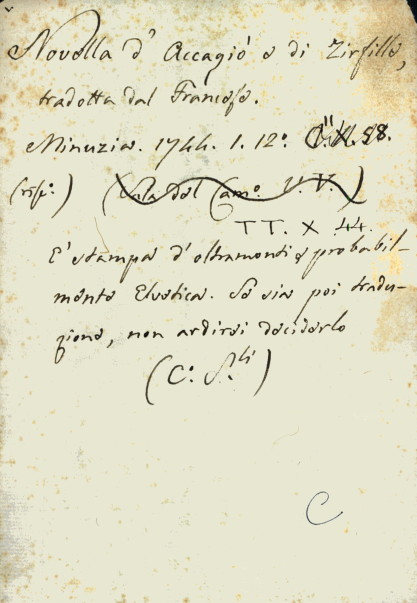 Novella d' Accagiò e di Zirfille,
tradotta dal Francese.
Minuzia. 1744. 1. 12.º
(risp.º) (Sala del Cam.º V. V.)
TT. X 44.
E' stampa d'oltramonti e probabil-
mente Elvetica. Se sia poi tradu-
zione, non ardirei deciderlo
(C.º S.li)
C